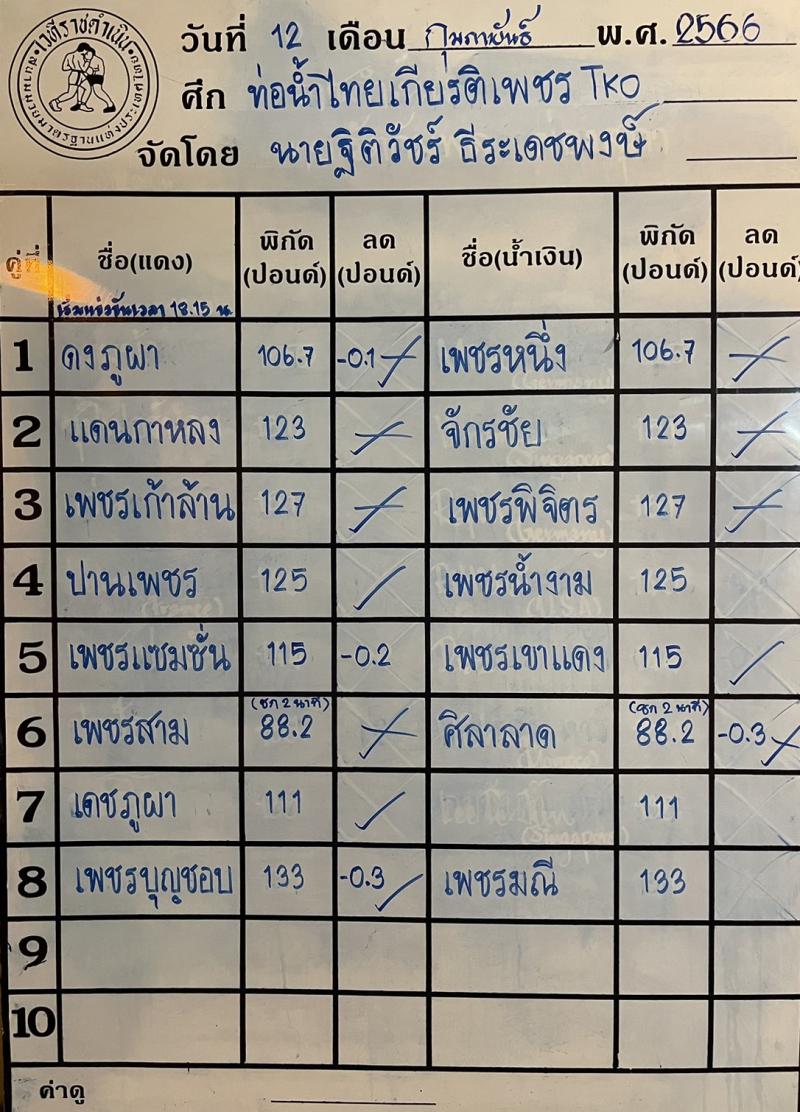 เวทีราชดำเนิน
สนามมวยมาตรฐานแห่งประเทศไทย
วันที่ 12 เดือน กุมภาพันธ์ พ.ศ. 2566
ศึก ท่อน้ำไทยเกียรติเพชร TKO
จัดโดย นายฐิติวัชร์ ธีระเดชพงษ์
คู่ที่ ชื่อ(แดง) พิกัด (ปอนด์) ลด (ปอนด์) ชื่อ(น้ำเงิน) พิกัด (ปอนด์) ลด (ปอนด์)
เริ่มแข่งขันเวลา 18.15 น.
1 ดงภูผา 106.7 -0.1 เพชรหนึ่ง 106.7
2 แดนกาหลง 123 จักรชัย 123
3 เพชรเก้าล้าน 127 เพชรพิจิตร 127
4 ปานเพชร 125 เพชรน้ำงาม 125
5 เพชรแซมซั่น 115 -0.2 เพชรเขาแดง 115
6 เพชรสาม (ชก 2 นาที) 88.2 ศิลาลาด (ชก 2 นาที) 88.2 -0.3
7 เดชภูผา 111 111
8 เพชรบุญชอบ 133 -0.3 เพชรมณี 133
9
10
ค่าดู